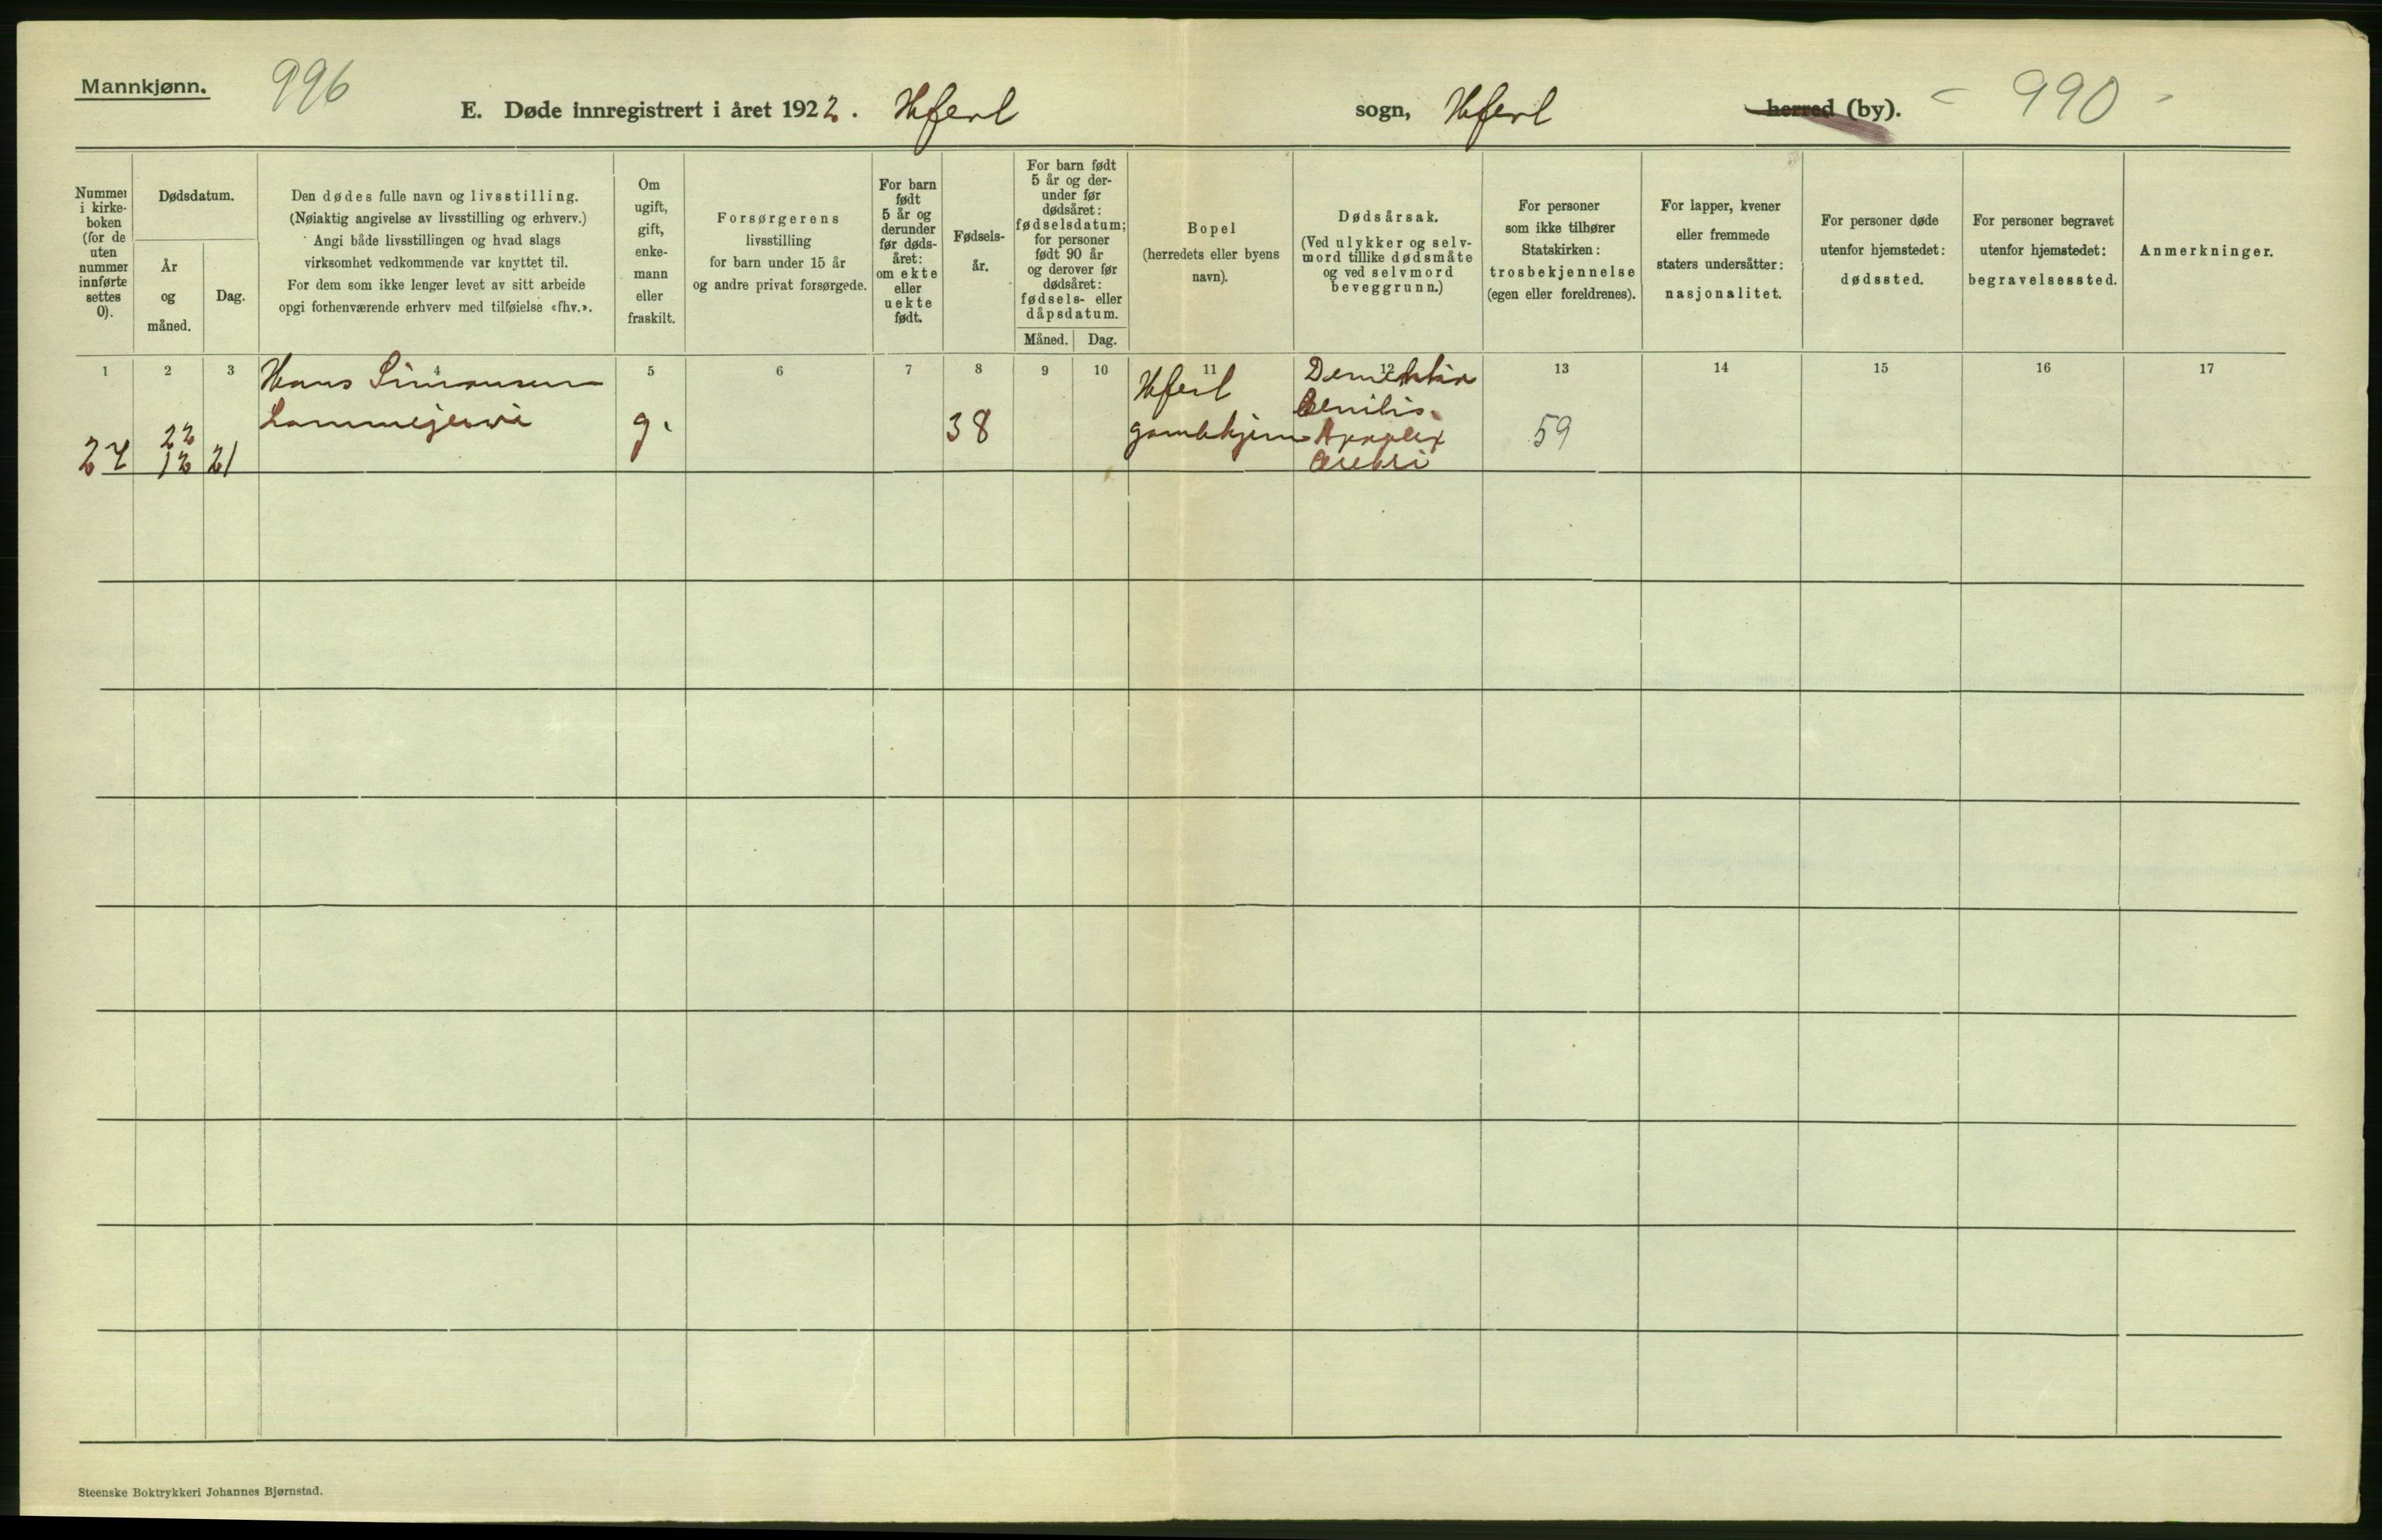 Mannkjønn.
996
E. Døde innregistrert i året 1922. Hferl sogn, Hferl herred (by). - 990 -
Nummer i kirke-boken (for de uten nummer innførte settes 0).
Dødsdatum.
År og måned.
Dag.
Den dødes fulle navn og livsstilling.
(Nøiaktig angivelse av livsstilling og erhverv.)
Angi både livsstillingen og hvad slags
virksomhet vedkommende var knyttet til.
For dem som ikke lenger levet av sitt arbeide
opgi forhenværende erhverv med tilføielse «fhv.».
Om
ugift,
gift,
enke-
mann
eller
fraskilt.
Forsørgerens
livsstilling
for barn under 15 år
og andre privat forsørgede.
For barn
født
5 år og
derunder
før døds-
året:
om ekte
eller
uekte
født.
Fødsels-
år.
For barn født
5 år og der-
under før
dødsåret:
fødselsdatum;
for personer
født 90 år
og derover før
dødsåret:
fødsels- eller
dåpsdatum.
Måned. Dag.
Bopel
(herredets eller byens
navn).
Dødsårsak.
(Ved ulykker og selv-
mord tillike dødsmåte
og ved selvmord
beveggrunn.)
For personer
som ikke tilhører
Statskirken:
trosbekjennelse
(egen eller foreldrenes).
For lapper, kvener
eller fremmede
staters undersåtter:
nasjonalitet.
For personer døde
utenfor hjemstedet:
dødssted.
For personer begravet
utenfor hjemstedet:
begravelsessted.
Anmerkninger.
1 2 3 4 5 6 7 8 9 10 11 12 13 14 15 16 17
Hans Simonsen
Hferl
Dementia
Senilis.
22
g.
38
gamlehjem
Apoplex
59
27 12 21
cerebri
Steenske Boktrykkeri Johannes Bjørnstad.